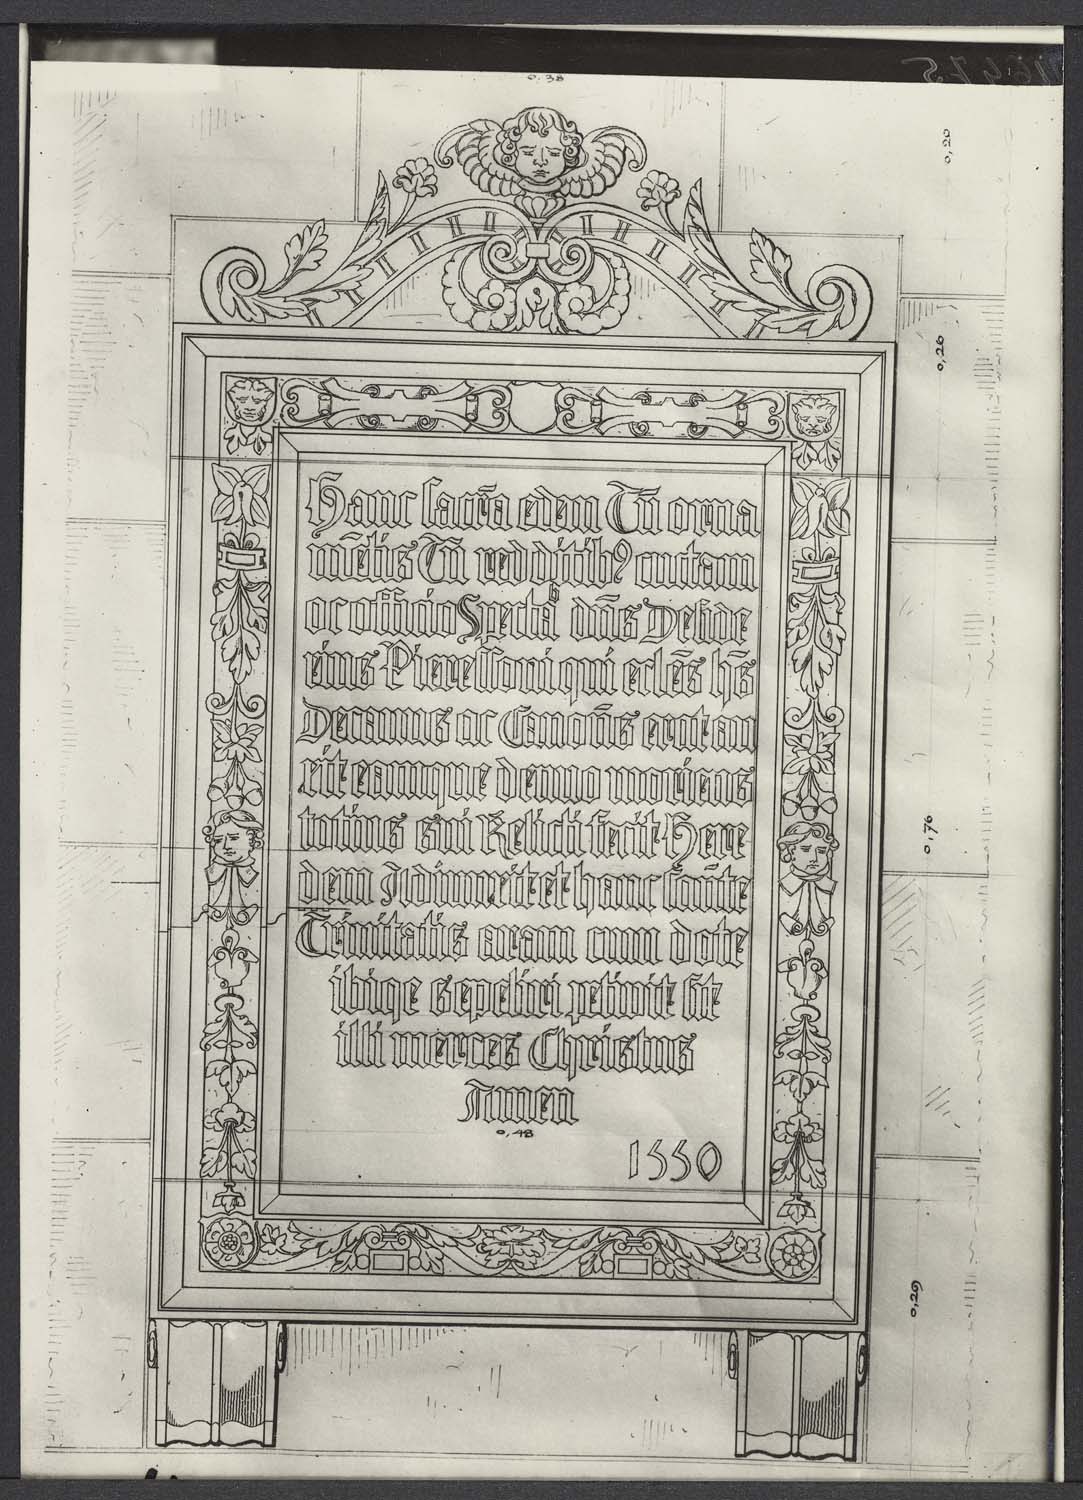 0.38
0,20
0,26
Hanc sacrā edem Tū orna
mētis Tū redditibꝰ cuctam
ac officio Spectaᵇ dn̄s Deside
rius Pieressoni qui eclēs hs̄
Decanus ac Canoñs erat au
xit eamque denuo moriens
totius sui Relicti fecit Here
dem Adiunxit et hanc san̄te
Trinitatis aram cum dote
ibiqe sepeliri petivit Sit
illi merces Christus
Amen
0,48
1550
0,76
0,29